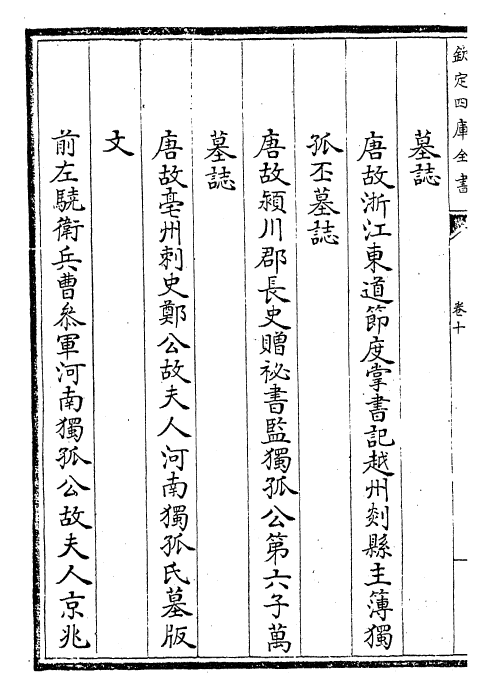 欽定四庫全書
卷十
墓誌
唐故浙江東道節度掌書記越州剡縣主簿獨
孤丕墓誌
唐故潁川郡長史贈祕書監獨孤公第六子萬
墓誌
唐故亳州刺史鄭公故夫人河南獨孤氏墓版
文
前左驍衛兵曹叅軍河南獨孤公故夫人京兆